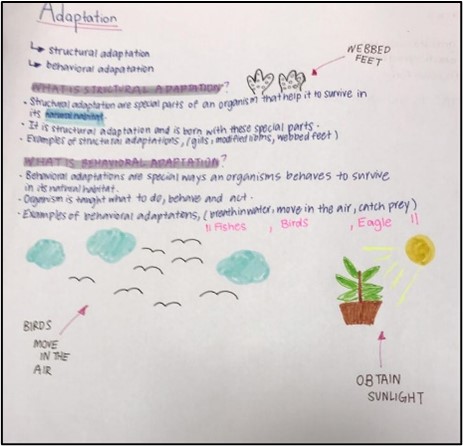 Adaptation
↳ structural adaptation
↳ behavioral adapatation
WEBBED
FEET
WHAT IS STRICTURAL ADAPTATION?
• Structural adaptation are special parts of an organism that help it to survive in
its natural habitat.
• It is structural adaptation and is born with these special parts.
• Examples of structural adaptations, (gills, modified limbs, webbed feet)
WHAT IS BEHAVIORAL ADAPTATION?
• Behavioral adaptations are special ways an organisms behaves to survive
in its natural habitat.
• Organism is taught what to do, behave and act.
• Examples of behavioral adaptations, (breath in water, move in the air, catch prey)
" Fishes , Birds , Eagle "
BIRDS
MOVE
IN THE
AIR
OBTAIN
SUNLIGHT